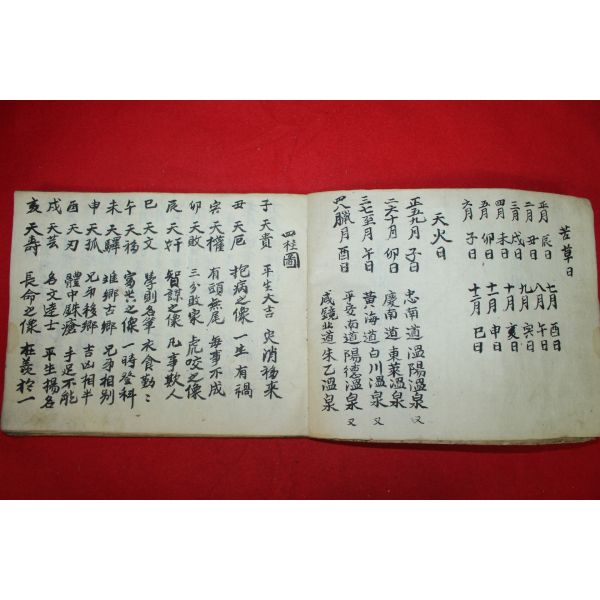 苦草日
正月 辰日 七月 酉日
二月 丑日 八月 午日
三月 戌日 九月 寅日
四月 未日 十月 亥日
五月 卯日 十一月 申日
六月 子日 十二月 巳日
天火日
正五九月 子日 忠南道 溫陽溫泉 又
二六十月 卯日 慶南道 東萊溫泉 又
三七至月 午日 黃海道 白川溫泉 又
四八臘月 酉日 平安南道 陽德溫泉 又
咸鏡北道 朱乙溫泉
四柱圖
子 天貴 平生大吉 災消福來
丑 天厄 抱病之像 一生有禍
寅 天權 有頭無尾 每事不成
卯 天敗 三分敗家 虎咬之像
辰 天奸 智諒之像 凡事欺人
巳 天文 學則名筆 衣食勤々
午 天福 富貴之像 一時登科
未 天驛 離鄉古鄉 兄弟相別
申 天孤 兄弟移鄉 吉凶相半
酉 天刃 體中銖瘡 手足不能
戌 天芸 名文達士 平生揚名
亥 天壽 長命之像 在羨於一